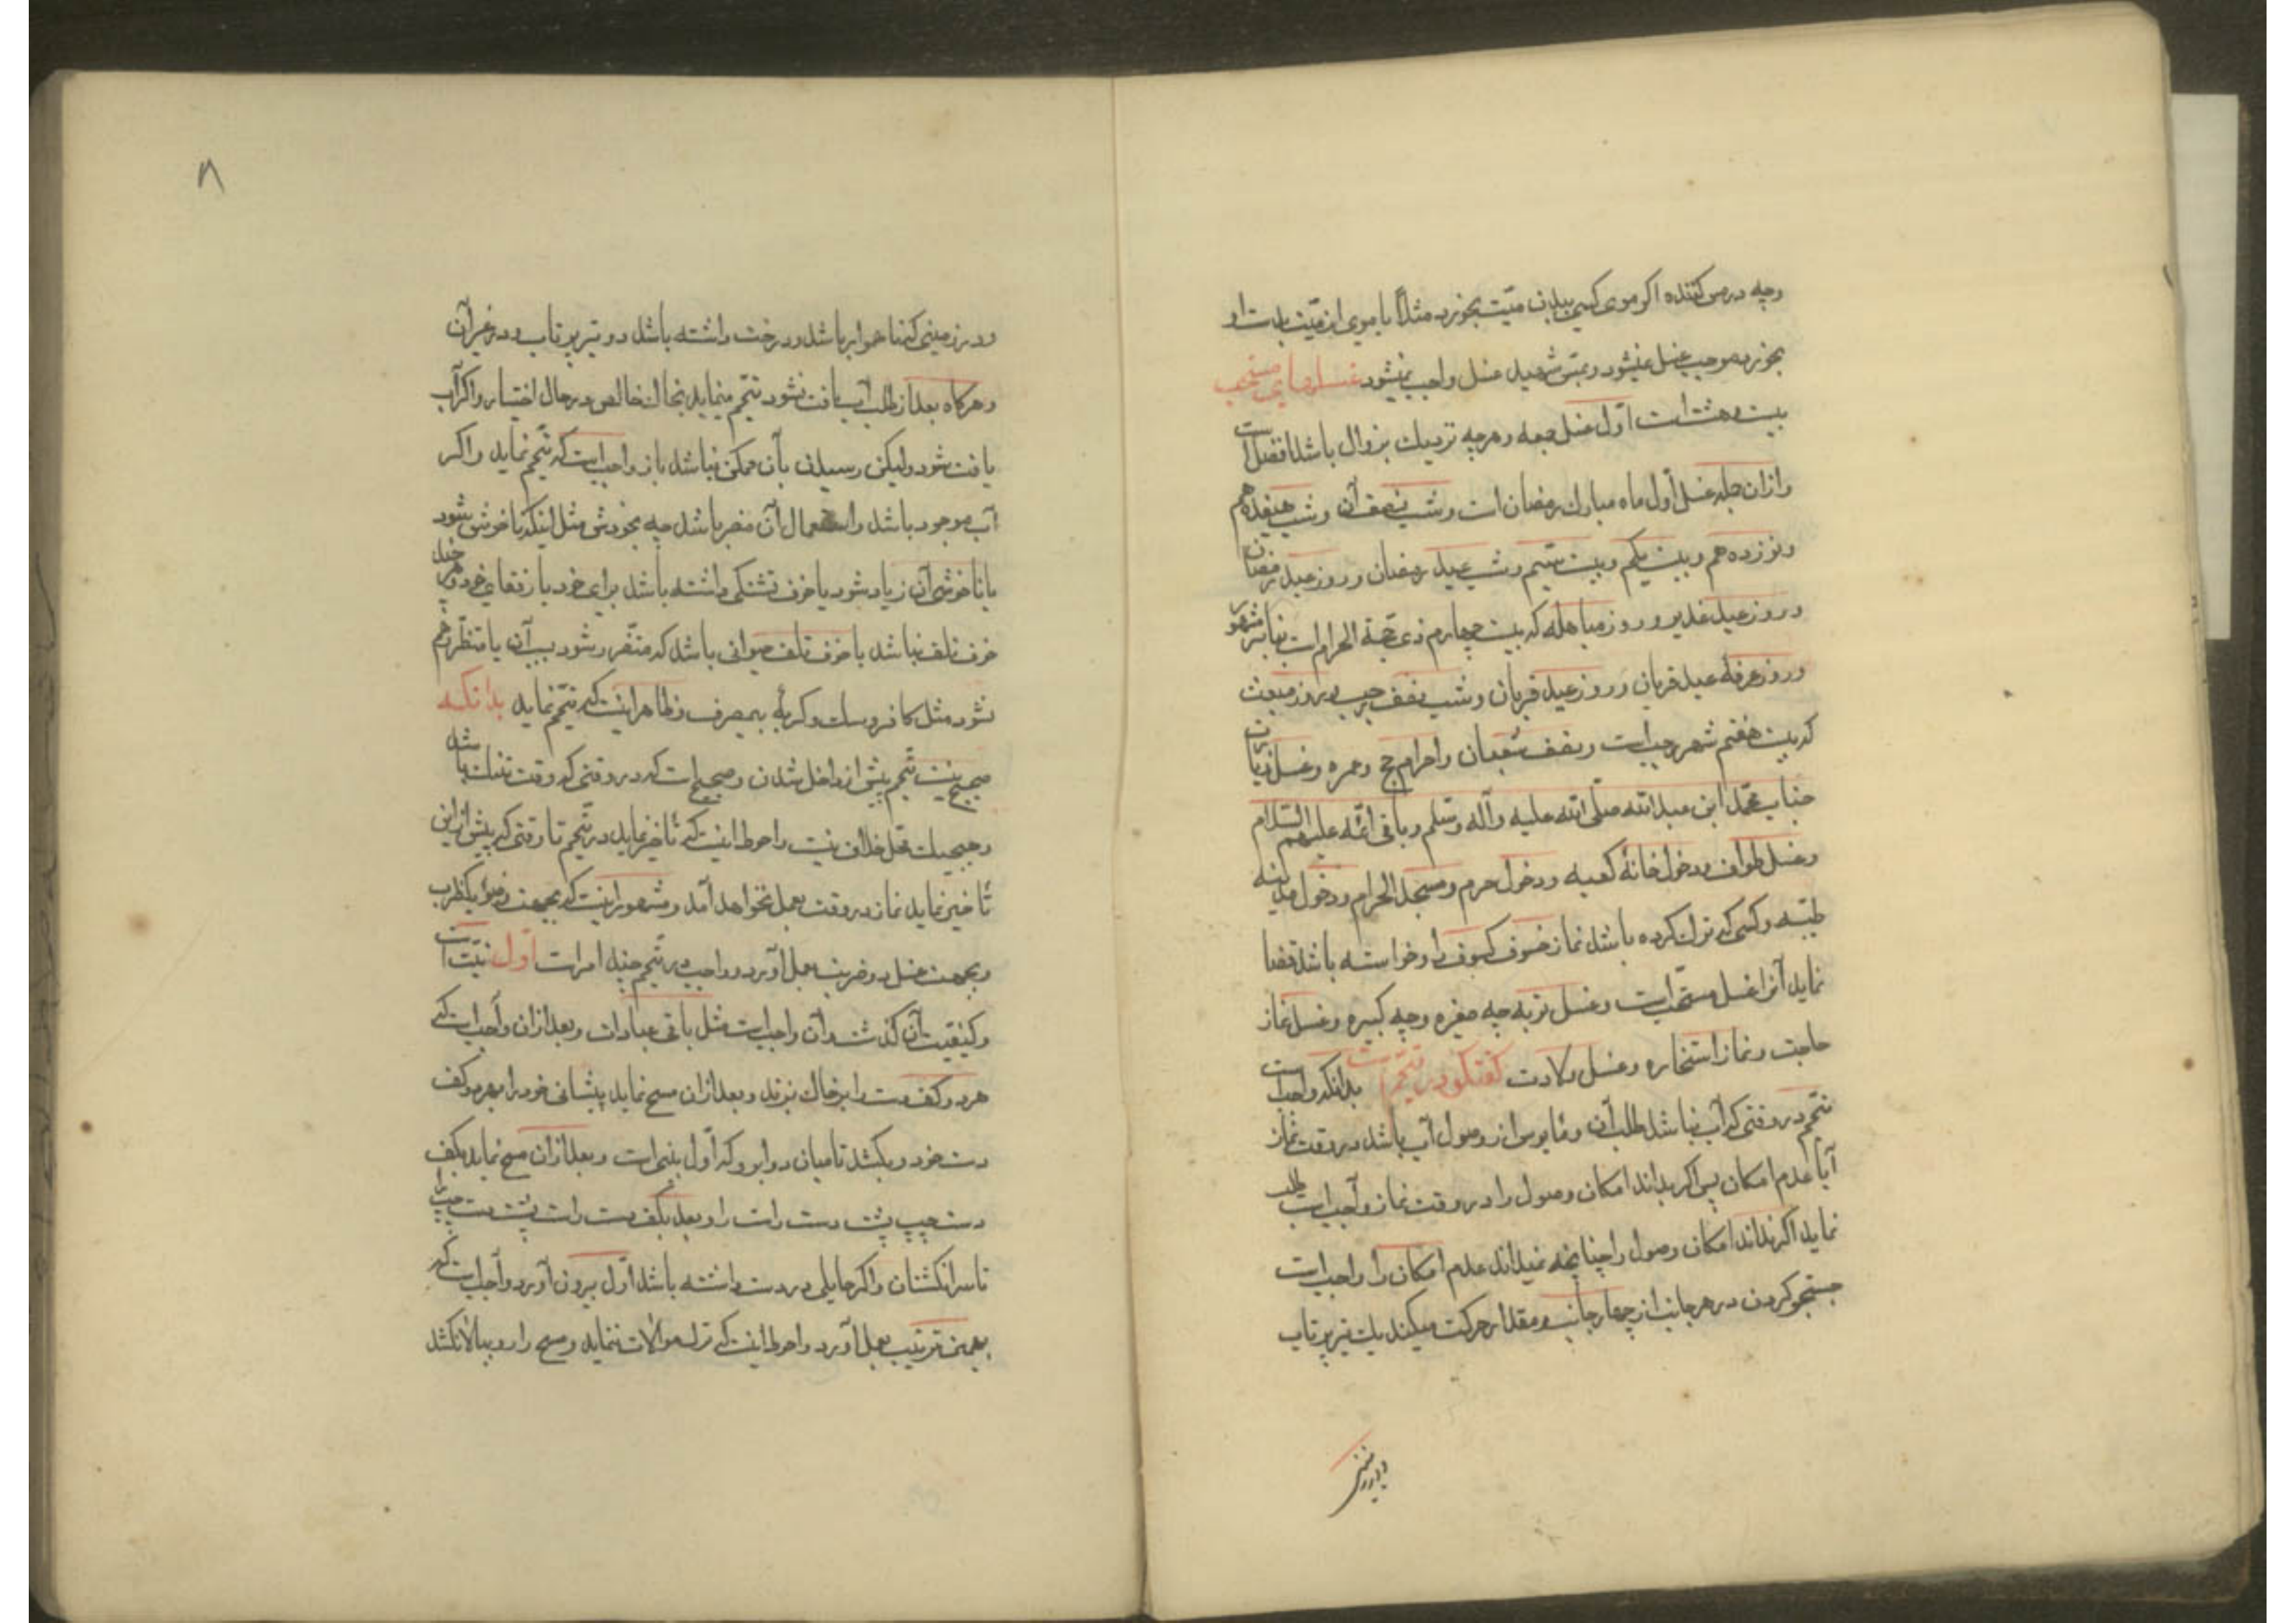 وچه در مس کننده اکر موی کسی ببدن میّت بخورد مثلاً یا موی ان میّت ببدن او
بخورد موجب غسل نمیشود و بمسّ شهید غسل واجب نمیشود غسلهای مستحب
بیست و هشت است اوّل غسل جمعه و هر چه نزدیک بزوال باشد افضل است
و از ان جمله غسل اول ماه مبارک رمضان است و شب نصف آن و شب هیفدهم
و نوزدهم و بیست یکم و بیست سیّم و شب عید رمضان و روز عید رمضان
و روز عید غدیر و روز مباهله که بیست چهارم ذی حجّة الحرام است بنا بر مشهور
و روز عرفهٔ عید قربان و روز عید قربان و شب نصف رجب و روز مبعث
که بیست هفتم شهر رجب است و نصف شعبان و احرام حج و عمره و غسل زیارت
جناب محمّد ابن عبد الله صلّی الله علیه و آله و سلّم و باقی ائمّه علیهم السلام
و غسل طواف و دخول خانهٔ کعبه و دخول حرم و مسجد الحرام و دخول مدینه
طیّبه و کسی که ترک کرده باشد نماز خسوف کسوف را و خواسته باشد قضا
نماید آنرا غسل مستحّب است و غسل توبه چه صغیره و چه کبیره و غسل نماز
حاجت و نماز استخاره و غسل ولادت کفتکو در تیّمم است بدانکه واجب است
تیّمم در وقتی که آب نباشد طلب آن و مایوس از وصول آب باشد در وقت نماز
آیا عدم امکان پس اکر بداند امکان وصول را در وقت نماز واجب است طلب
نماید اکر نداند امکان وصول را چنانچه نمیداند عدم امکان را واجب است
جستجو کردن در هر جانب از چهار جانب و مقدار حرکت میکند یک تیر پرتاب
و در زمینی
۸
و در زمینی که ناهموار باشد و درخت داشته باشد دو تیر پرتاب و در غیر آن
و هرکاه بعد از طلب آب یافت نشود تیّمم مینماید بخاک خالص در حال اختیار و اکر آب
یافت شود ولیکن رسیدن بآن ممکن نباشد باز واجب است که تیّمم نماید و اکر
آب موجود باشد و استعمال آن مضر باشد چه بخودش مثل اینکه ناخوش شود
یا ناخوشی آن زیاد شود یا خوف تشنکی داشته باشد برای خود یا رفقای خود و هر چند
خوف تلف نباشد یا خوف تلف حیوانی باشد که متضّرر شود بسبب آن یا متضّرر هم
نشود مثل کافر و سک و کربهٔ بیمصرف و ظاهر اینست که تیّمم نماید بدانکه
صحیح نیست تیّمم پیش از داخل شدن و صحیح است که در وقتی که وقت تنک باشد
تا خیر نماید نماز در وقت بعمل نخواهد آمد و مشهور اینست که بجهت وضو یکضرب
و بجهت غسل دو ضربت بعمل آورد و واجب در تیّمم چند امر است اوّل نیّت است
و کیفیّت آن کذشت و آن واجب است مثل باقی عبادات و بعد از ان واجب است که
هر دو کف دست را بر خاک بزند و بعد از ان مسح نماید پیشانی خود را بهر دو کف
دست خود و بکشد تا میان دو ابرو که اوّل بینی است و بعد از ان مسح نماید بکف
دست چپ پشت دست راست را و بعد بکف دست راست پشت دست چپ را
تا سر انکشتان و اکر حایلی در دست داشته باشد اوّل بیرون آورد و واجب است که
بهمین ترتیب بعمل آورد و احوط اینست که ترک موالات ننماید و مسح را رو ببالا نکشد